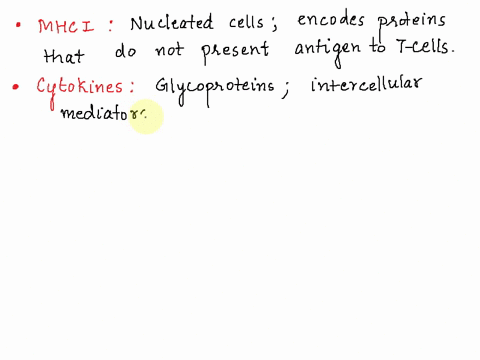 • MHC I : Nucleated cells ; encodes proteins
that do not present antigen to T-cells.
• Cytokines : Glycoproteins ; intercellular
mediators